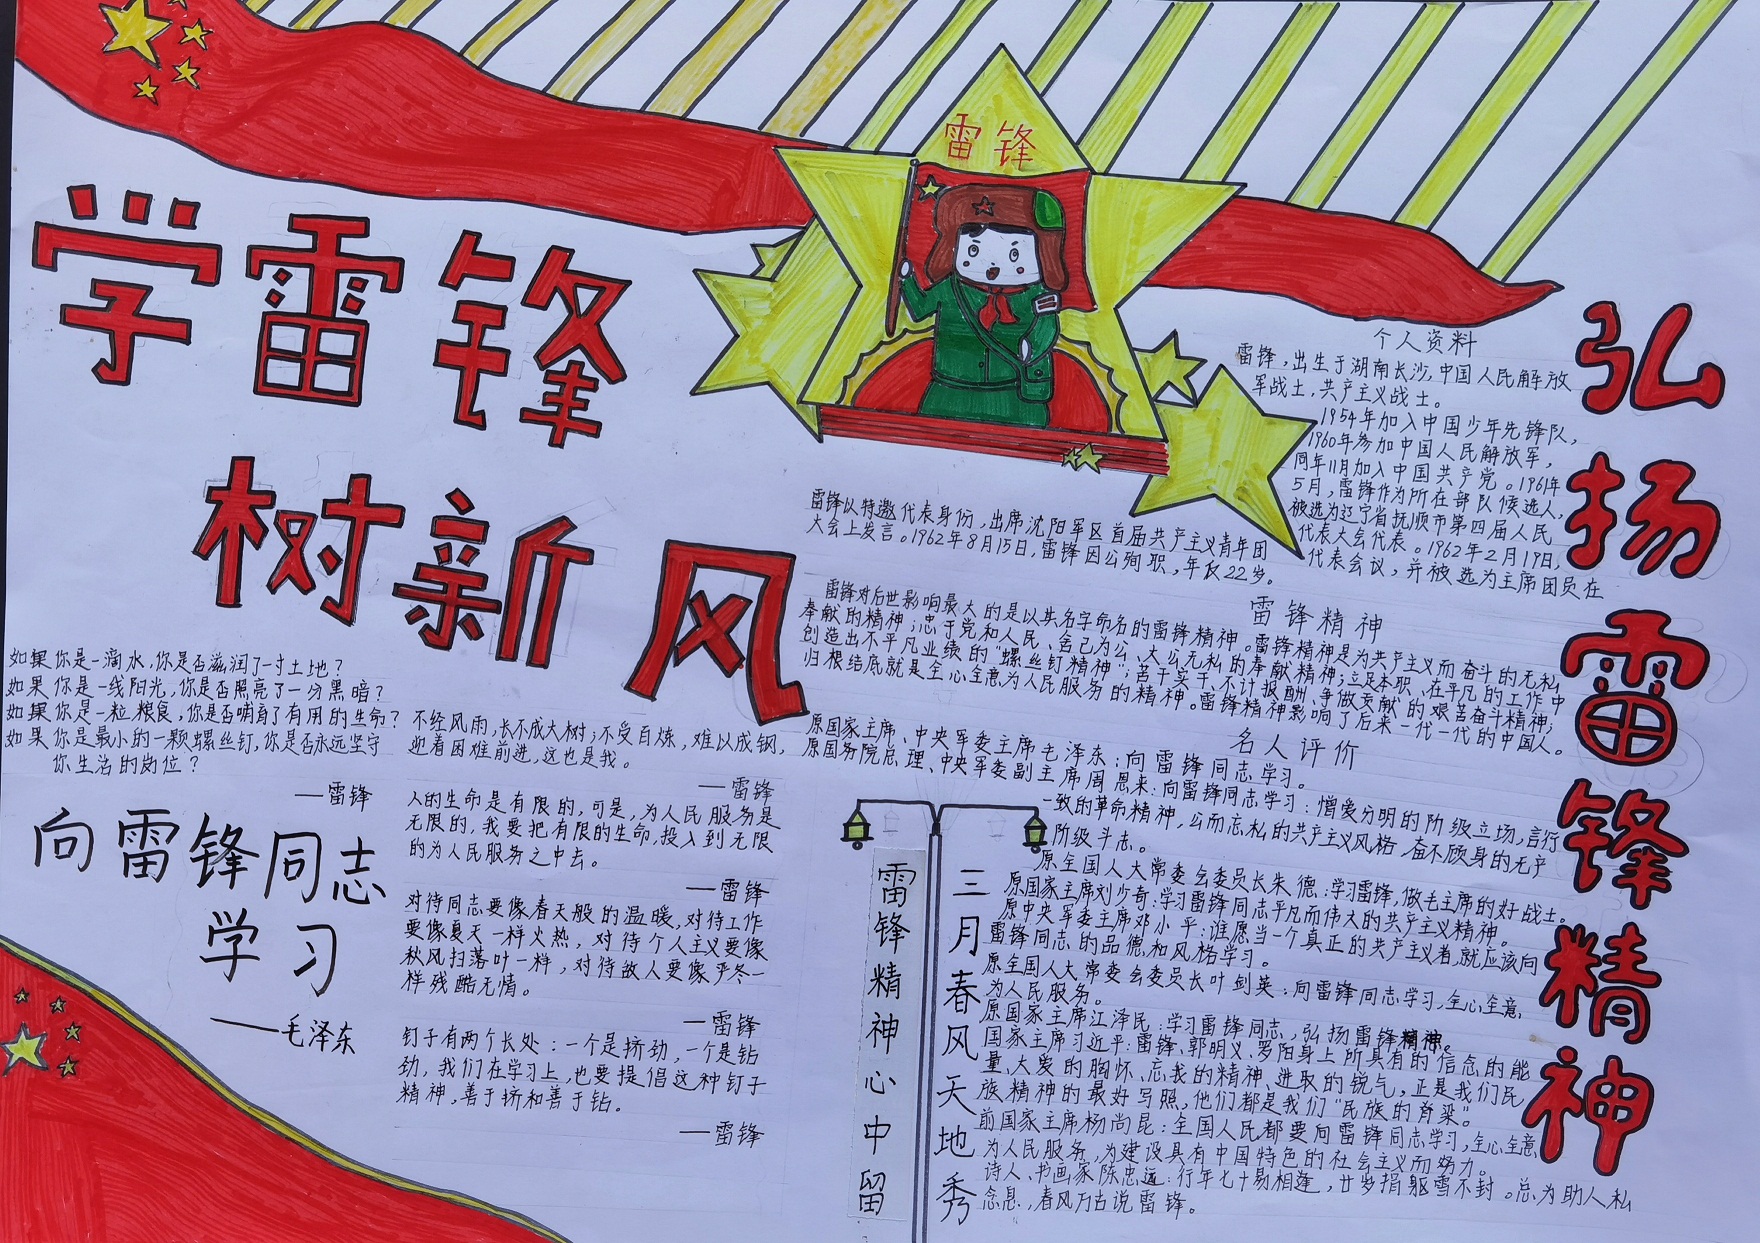 雷锋
学雷锋
树新风
弘扬雷锋精神
个人资料
雷锋,出生于湖南长沙,中国人民解放
军战士,共产主义战士。
1954年加入中国少年先锋队,
1960年参加中国人民解放军,
同年11月加入中国共产党。1961年
5月,雷锋作为所在部队候选人,
被选为辽宁省抚顺市第四届人民
代表大会代表。1962年2月19日,
雷锋以特邀代表身份,出席沈阳军区首届共产主义青年团
代表会议,并被选为主席团员在
大会上发言。1962年8月15日,雷锋因公殉职,年仅22岁。
雷锋精神
雷锋对后世影响最大的是以其名字命名的雷锋精神。雷锋精神是为共产主义而奋斗的无私
奉献的精神;忠于党和人民、舍己为公、大公无私的奉献精神;立足本职、在平凡的工作中
创造出不平凡业绩的“螺丝钉精神”;苦干实干、不计报酬、争做贡献的艰苦奋斗精神;
归根结底就是全心全意为人民服务的精神。雷锋精神影响了后来一代一代的中国人。
名人评价
原国家主席、中央军委主席毛泽东:向雷锋同志学习。
原国务院总理、中央军委副主席周恩来:向雷锋同志学习:憎爱分明的阶级立场,言行
一致的革命精神,公而忘私的共产主义风格,奋不顾身的无产
阶级斗志。
原全国人大常委会委员长朱德:学习雷锋,做毛主席的好战士。
原国家主席刘少奇:学习雷锋同志平凡而伟大的共产主义精神。
原中央军委主席邓小平:谁愿当一个真正的共产主义者,就应该向
雷锋同志的品德和风格学习。
原全国人大常委会委员长叶剑英:向雷锋同志学习,全心全意
为人民服务。
原国家主席江泽民:学习雷锋同志,弘扬雷锋精神。
国家主席习近平:雷锋、郭明义、罗阳身上所具有的信念的能
量、大爱的胸怀、忘我的精神、进取的锐气,正是我们民
族精神的最好写照,他们都是我们“民族的脊梁”。
前国家主席杨尚昆:全国人民都要向雷锋同志学习,全心全意
为人民服务,为建设具有中国特色的社会主义而努力。
诗人、书画家陈忠远:行年七十易相逢,廿岁捐躯雪不封。总为助人私
念息,春风万古说雷锋。
如果你是一滴水,你是否滋润了一寸土地?
如果你是一线阳光,你是否照亮了一分黑暗?
如果你是一粒粮食,你是否哺育了有用的生命?
如果你是最小的一颗螺丝钉,你是否永远坚守
你生活的岗位?
—雷锋
向雷锋同志
学习
——毛泽东
不经风雨,长不成大树;不受百炼,难以成钢,
迎着困难前进,这也是我。
—雷锋
人的生命是有限的,可是,为人民服务是
无限的,我要把有限的生命,投入到无限
的为人民服务之中去。
—雷锋
对待同志要像春天般的温暖,对待工作
要像夏天一样火热,对待个人主义要像
秋风扫落叶一样,对待敌人要像严冬一
样残酷无情。
—雷锋
钉子有两个长处:一个是挤劲,一个是钻
劲,我们在学习上,也要提倡这种钉子
精神,善于挤和善于钻。
—雷锋
三月春风天地秀
雷锋精神心中留